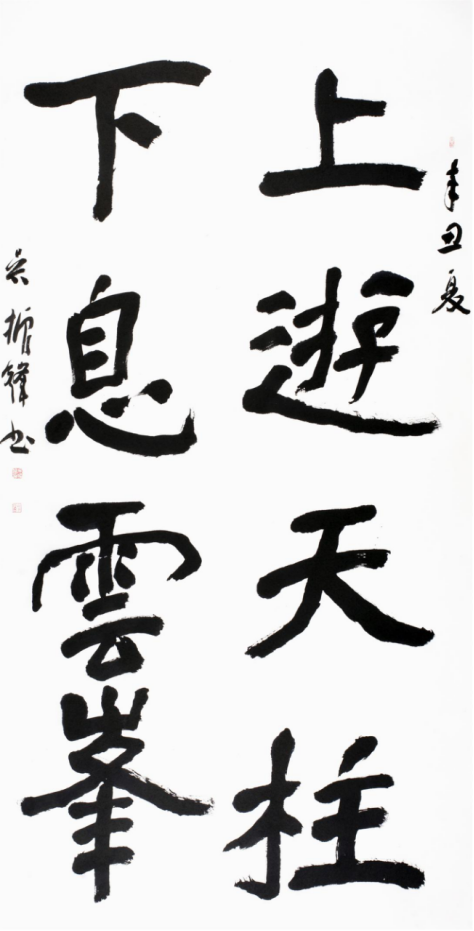 辛丑夏
上遊天柱
下息雲峯
吴振鋒书